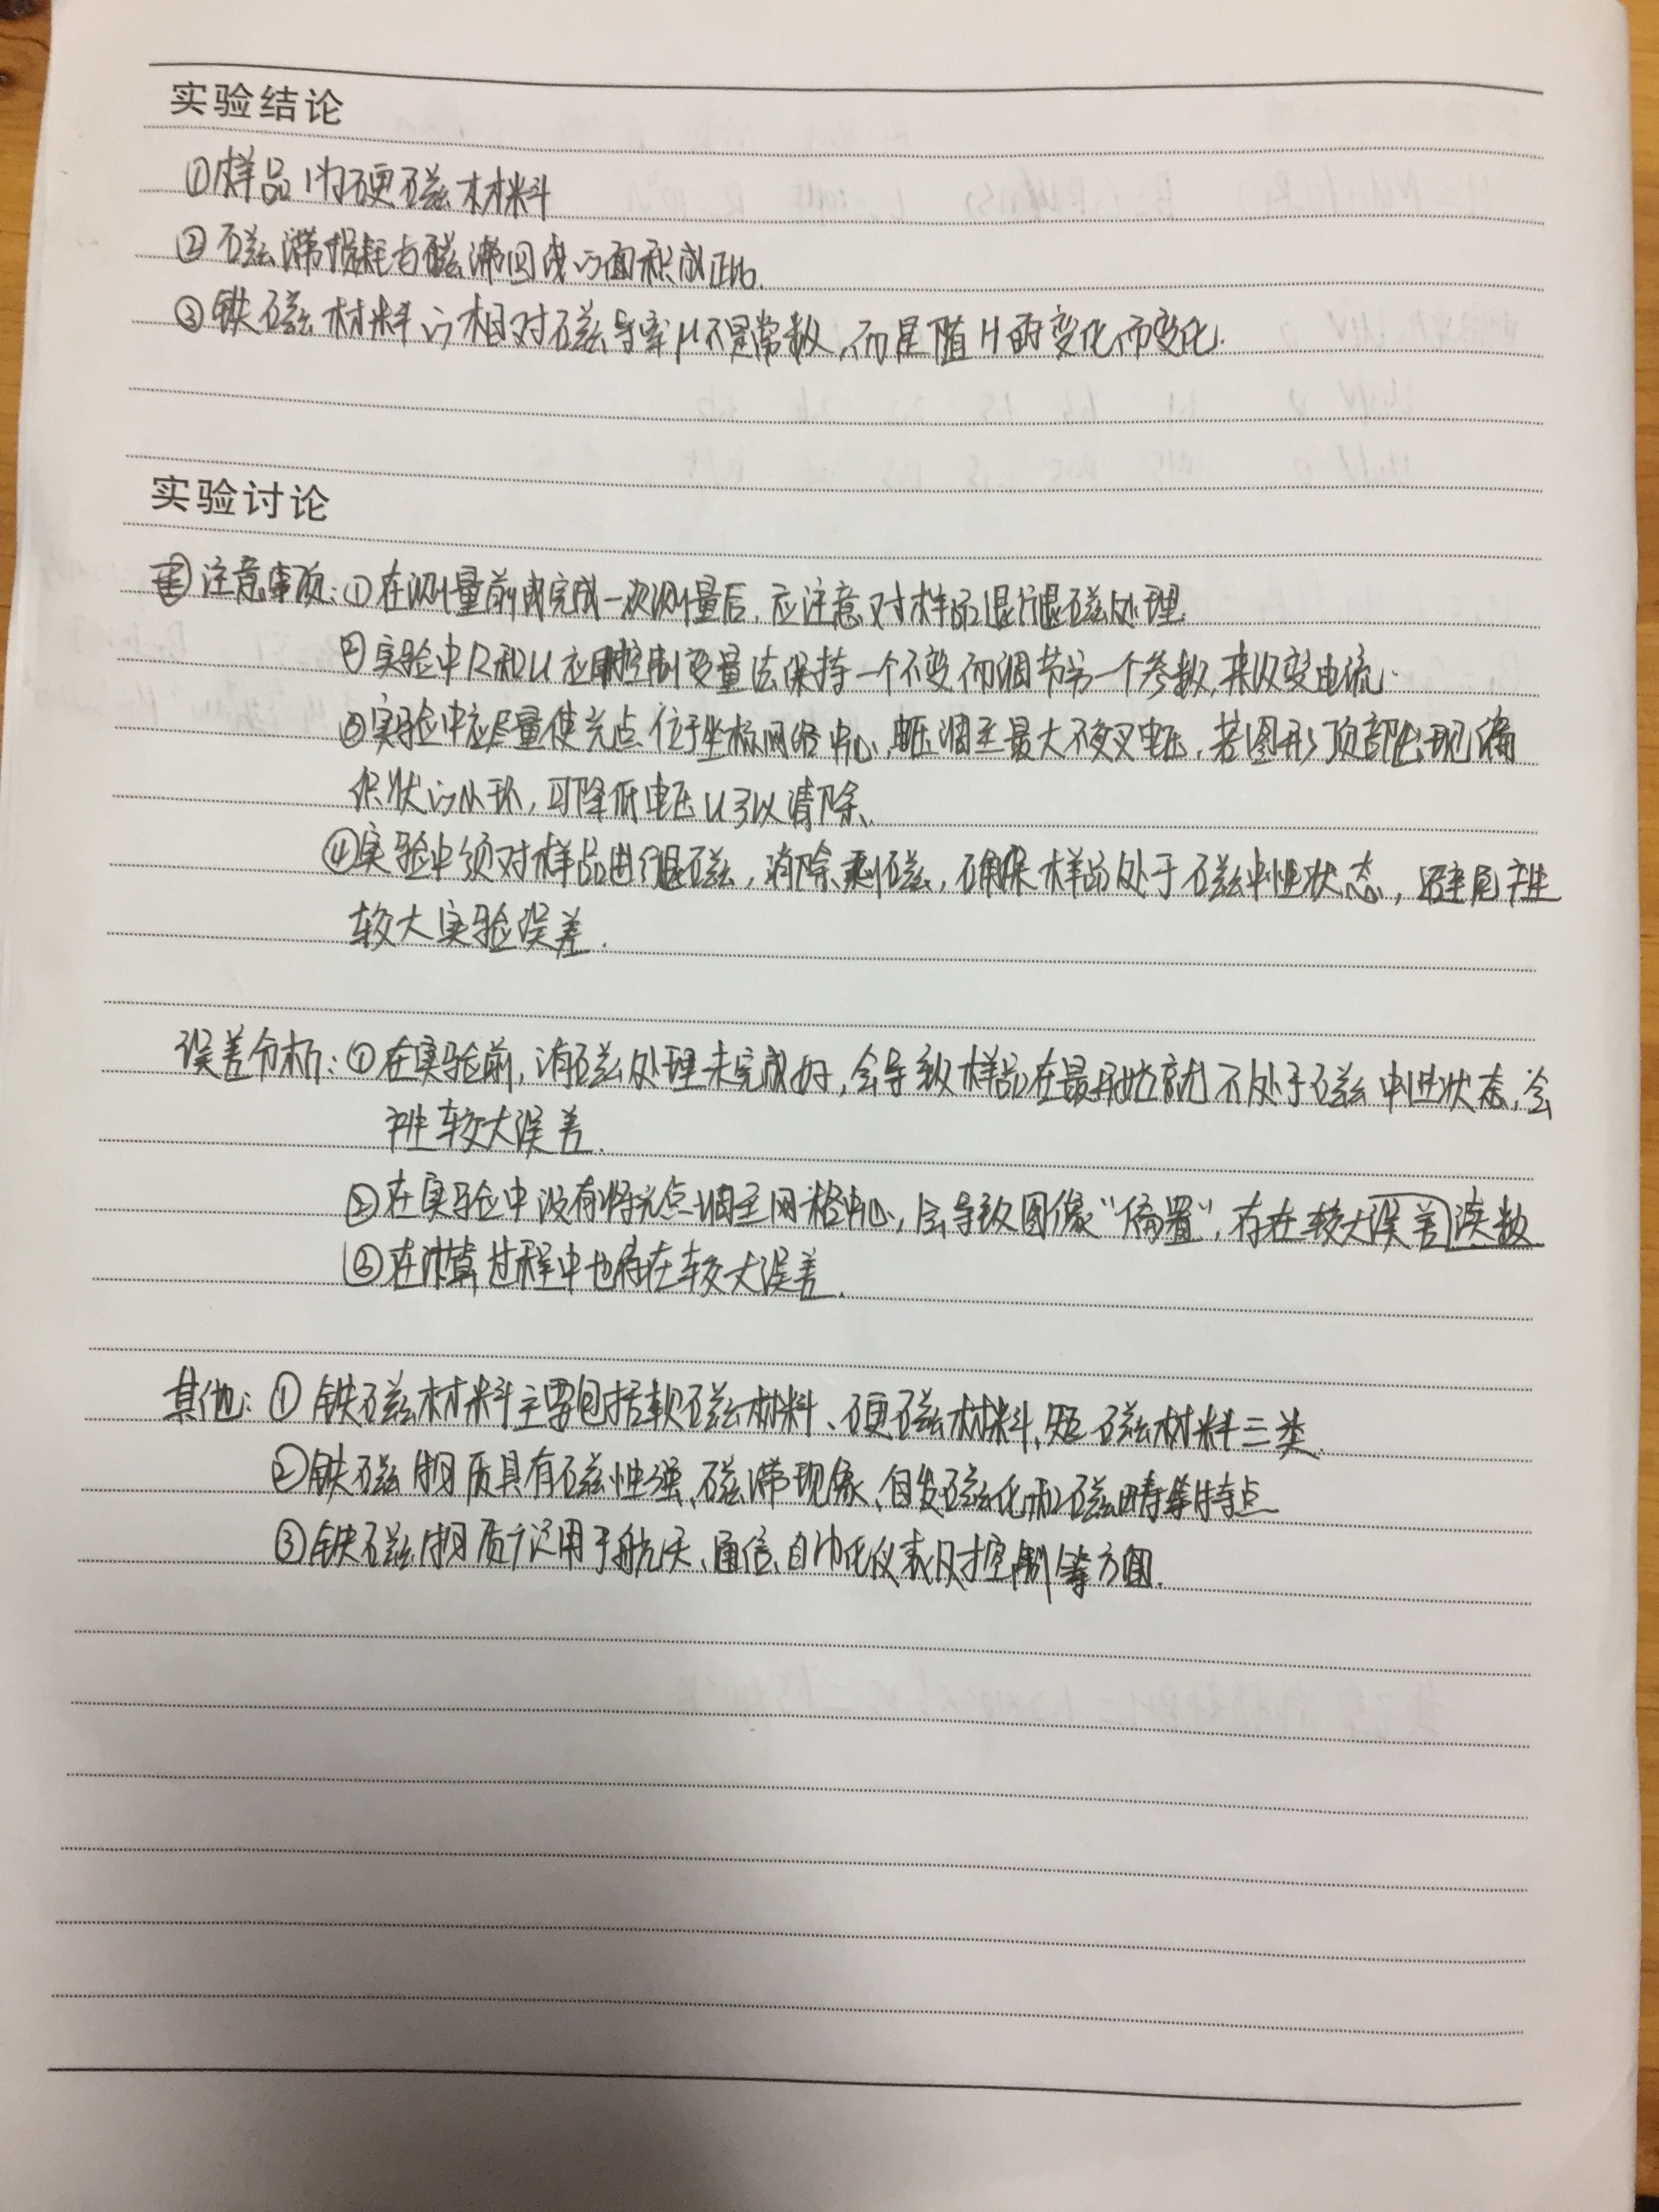 实验结论
①样品1为硬磁材料
②磁滞损耗与磁滞回线的面积成正比.
③铁磁材料的相对磁导率μ不是常数,而是随H的变化而变化.
实验讨论
注意事项:①在测量前或完成一次测量后,应注意对样品进行退磁处理.
②实验中R和U应用控制变量法保持一个不变而调节另一个参数,来改变电流.
③实验中应尽量使光点位于坐标网络中心,电压调至最大不变叉电压,若图形顶部出现编
织状的小环,可降低电压U予以清除.
④实验中须对样品进行退磁,消除剩磁,确保样品处于磁中性状态,避免产生
较大实验误差.
误差分析:①在实验前,消磁处理未完成好,会导致样品在最开始就不处于磁中性状态,会
产生较大误差.
②在实验中没有将光点调至网格中心,会导致图像“偏置”,存在较大误差读数
③在计算过程中也存在较大误差.
其他:①铁磁材料主要包括软磁材料、硬磁材料、矩磁材料三类.
②铁磁物质具有磁性强、磁滞现象、自发磁化和磁畴等特点
③铁磁物质广泛用于航天、通信、自动化仪表及控制等方面.